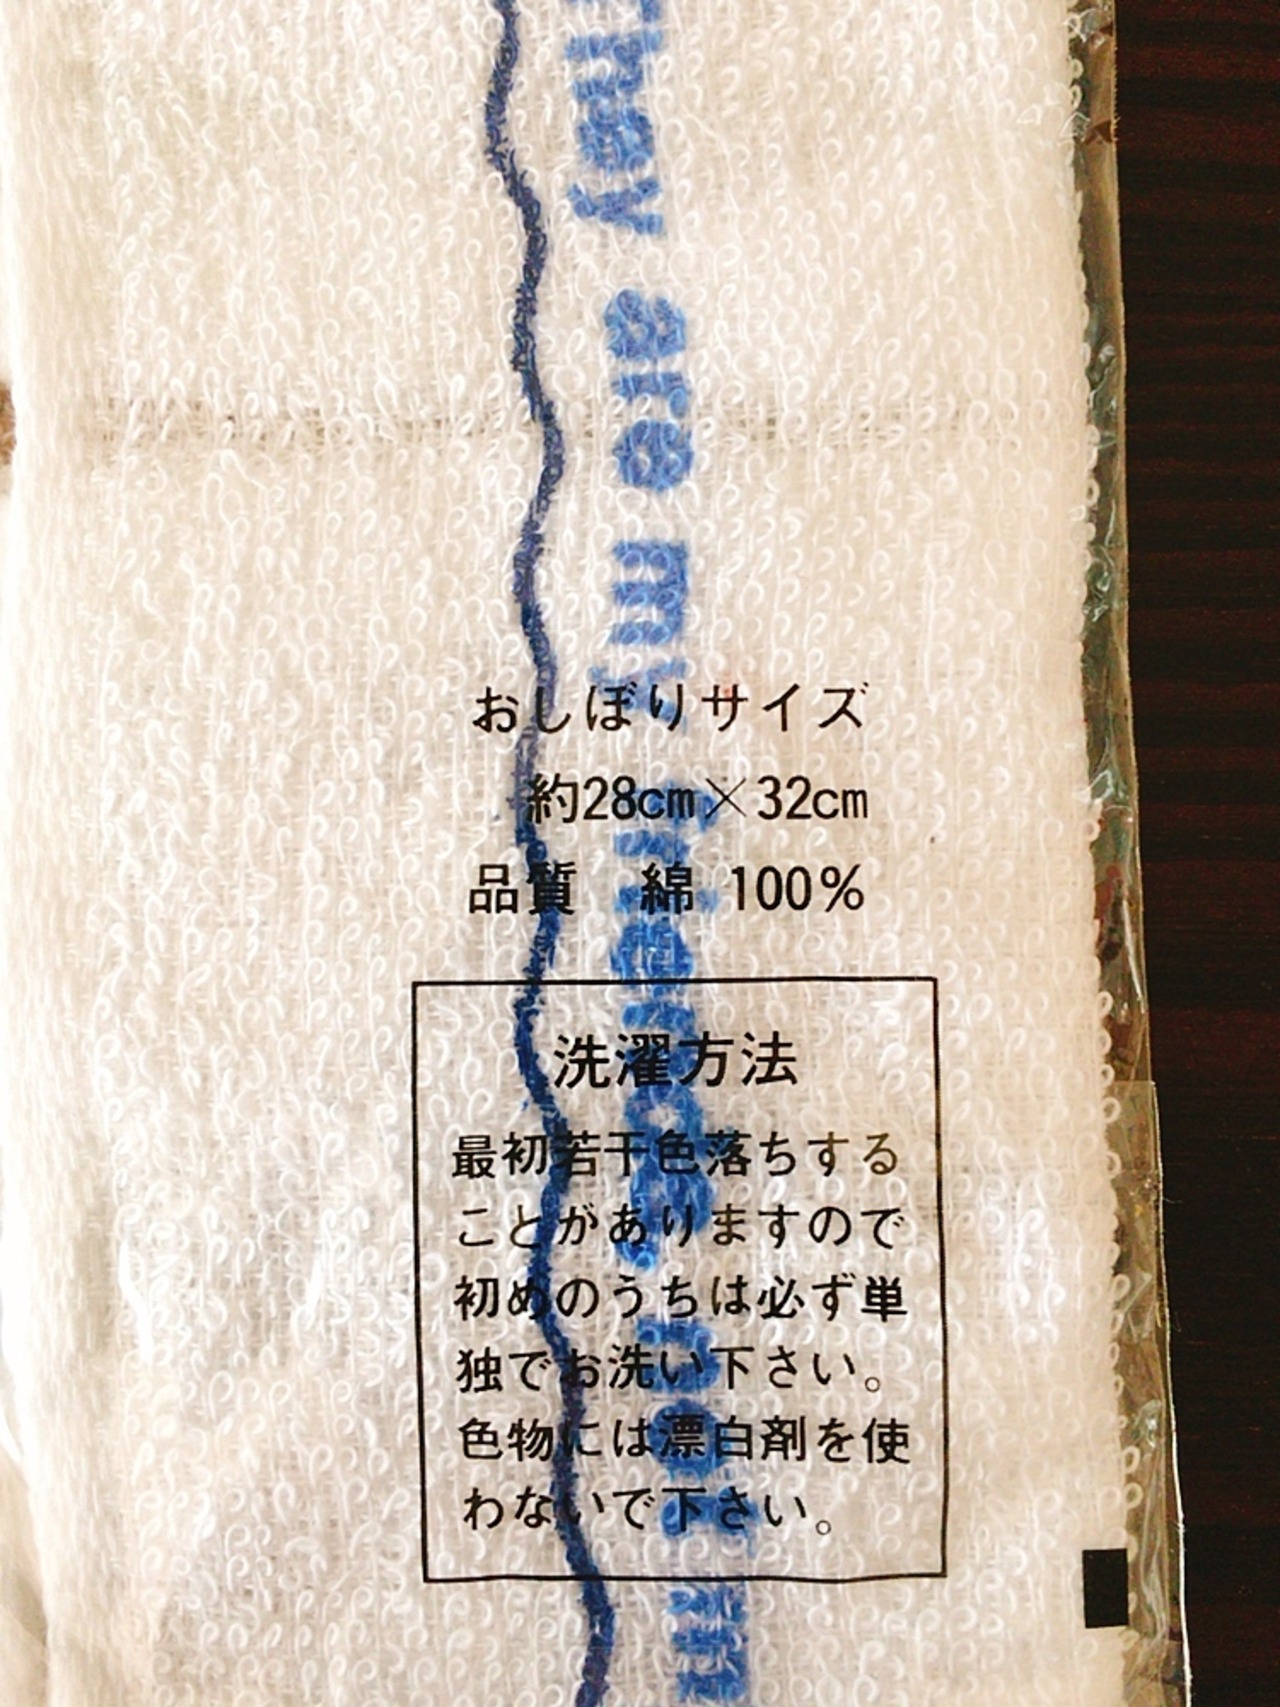 they are my friends.
おしぼりサイズ
約28cm×32cm
品質 綿 100%
洗濯方法
最初若干色落ちする
ことがありますので
初めのうちは必ず単
独でお洗い下さい。
色物には漂白剤を使
わないで下さい。